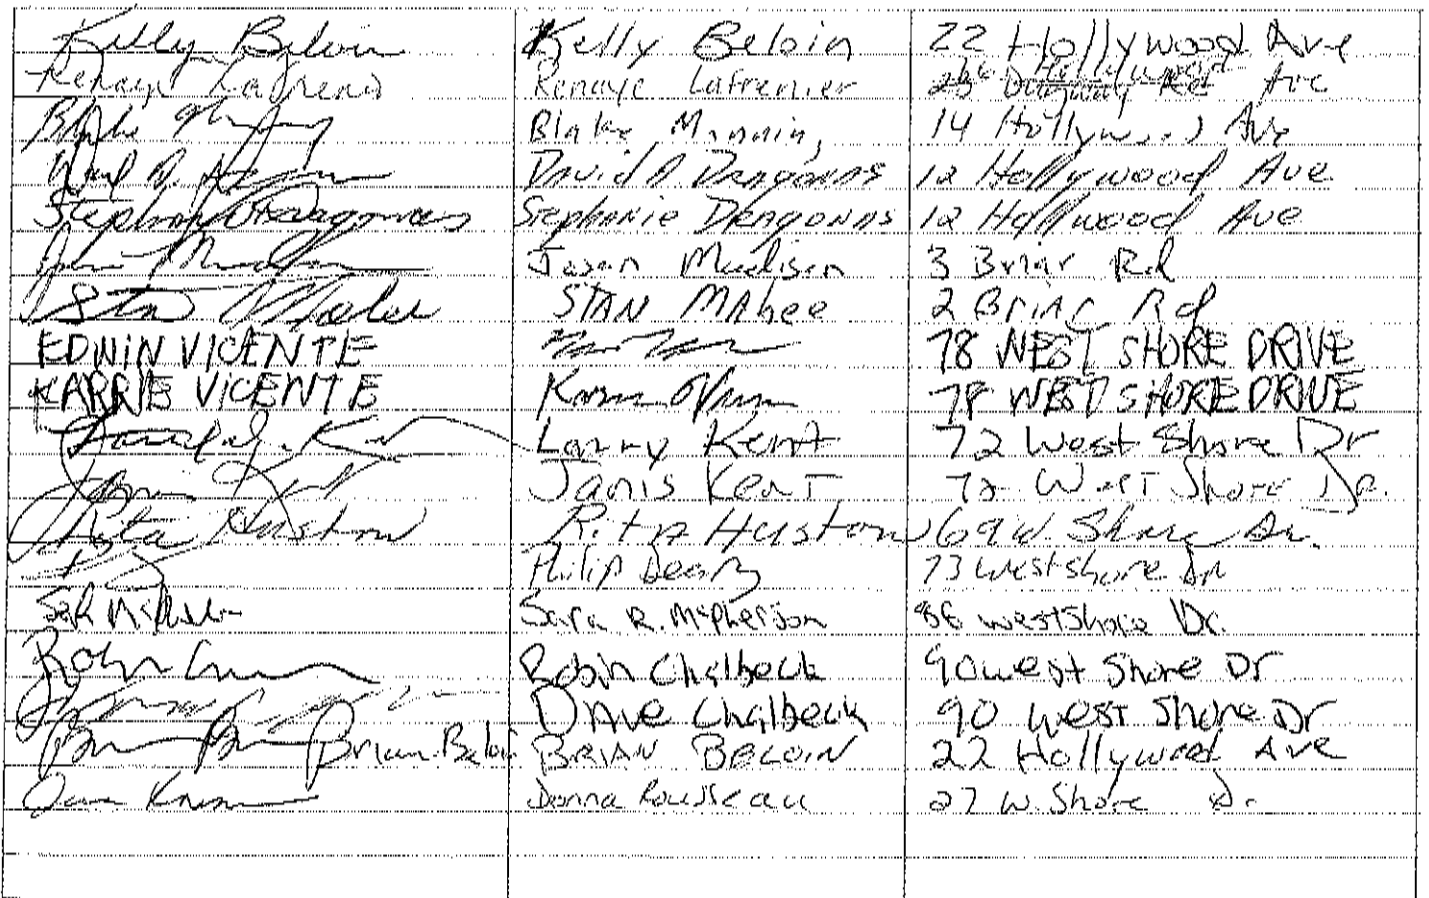 Kelly Beloin Kelly Beloin 22 Hollywood Ave
Renaye Lafrenier Renaye Lafrenier Hollywood Ave
Blake Blake Mannin 14 Hollywood Ave
David A. David A. Dragonas 12 Hollywood Ave.
Stephanie Dragonas Stephanie Dragonas 12 Hollywood Ave
Jason Madison 3 Briar Rd
Stan Mabee STAN MAbee 2 Briar Rd
EDWIN VICENTE 78 WEST SHORE DRIVE
KARRIE VICENTE 78 WEST SHORE DRIVE
Larry Kent 72 West Shore Dr
Janis Kent Janis Kent 72 West Shore Dr.
Rita Huston Rita Huston 69 W. Shore Dr.
Philip Dearz 73 westshore Dr
Sara R. McPherson 86 westshore Dr.
Robin Robin Chalbeck 90 west Shore Dr
Dave Chalbeck 90 west Shore Dr
Brian Beloin BRIAN BELOIN 22 Hollywood Ave
Donna Rousseau 27 W. Shore Dr